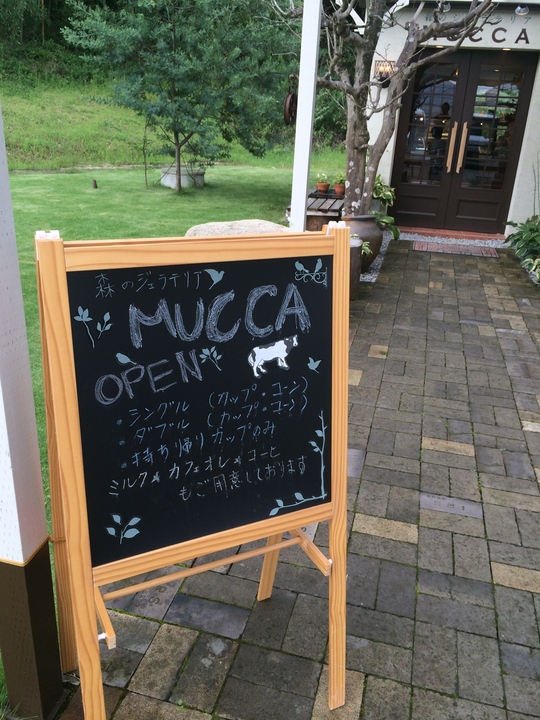 MUCCA
森のジェラテリア
MUCCA
OPEN
・シングル (カップ・コーン)
・ダブル (カップ・コーン)
・持ち帰りカップのみ
ミルク カフェオレ コーヒー
もご用意しております